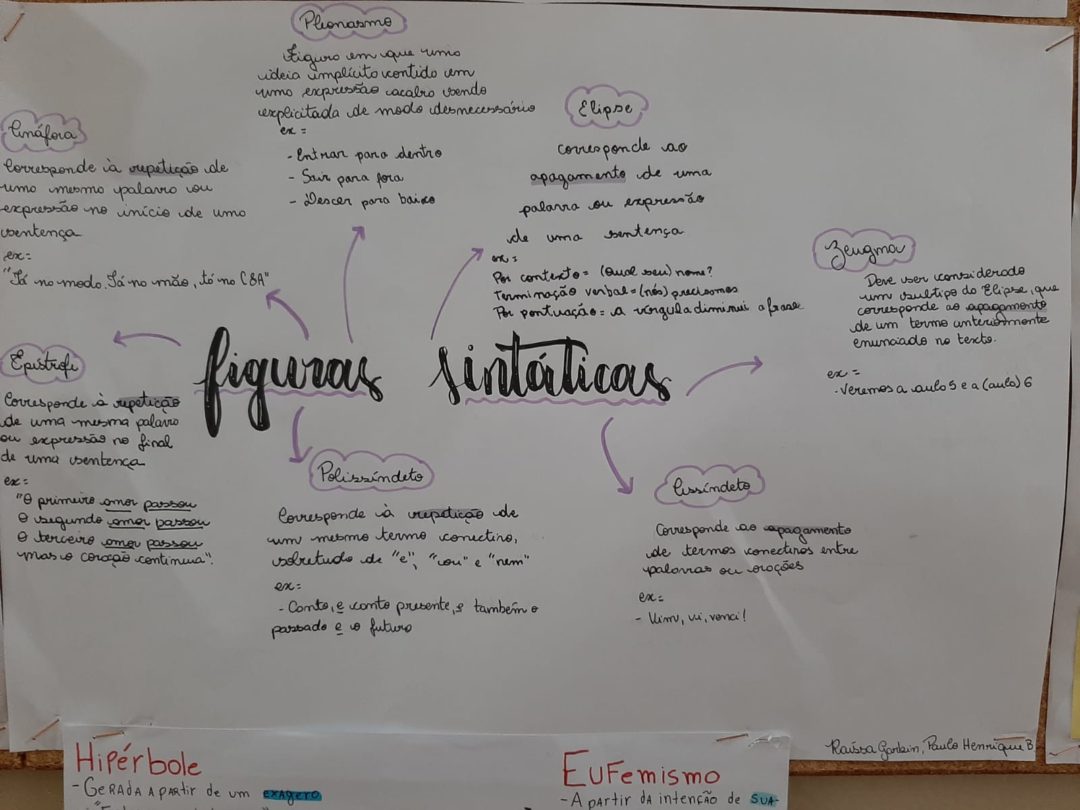 Pleonasmo
Figura em que uma
ideia implícita contida em
uma expressão acaba sendo
explicitada de modo desnecessário
ex =
- Entrar para dentro
- Sair para fora
- Descer para baixo
Elipse
corresponde ao
apagamento de uma
palavra ou expressão
de uma sentença
ex =
Por contexto = (Qual seu) nome?
Terminação verbal = (nós) precisamos
Por pontuação = a vírgula diminui a frase
Anáfora
Corresponde à repetição de
uma mesma palavra ou
expressão no início de uma
sentença
ex:
"Tá na moda, Tá na mão, tá na C&A"
Zeugma
Deve ser considerado
um subtipo da Elipse, que
corresponde ao apagamento
de um termo anteriormente
enunciado no texto.
ex =
- Veremos a aula 5 e a (aula) 6
figuras sintáticas
Epístrofe
Corresponde à repetição
de uma mesma palavra
ou expressão no final
de uma sentença
ex:
"O primeiro amor passou
O segundo amor passou
O terceiro amor passou
mas o coração continua".
Polissíndeto
Corresponde à repetição de
um mesmo termo conectivo,
sobretudo de "e", "ou" e "nem"
ex:
- Canto, e canto presente, e também o
passado e o futuro
Assíndeto
Corresponde ao apagamento
de termos conectivos entre
palavras ou orações
ex =
- Vim, vi, venci!
Raíssa Paulo Henrique B
Hipérbole
- GERADA A PARTIR DE UM EXAGERO
EuFemismo
- A PARTIR DA INTENÇÃO DE SUA-